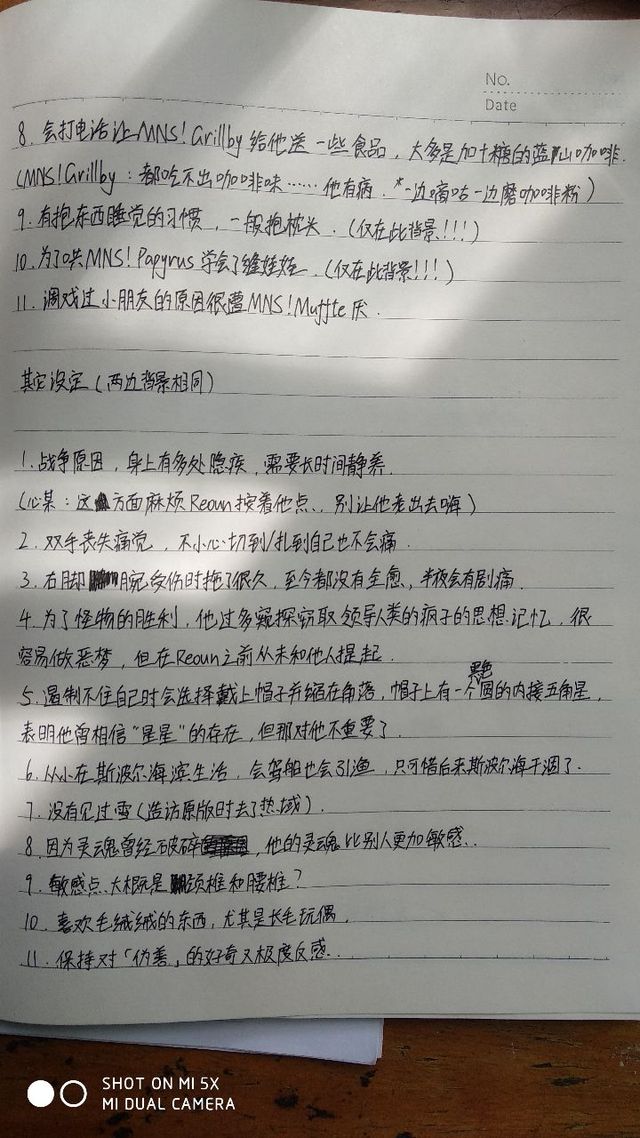 No.
Date
8. 会打电话让MNS!Grillby给他送一些食品，大多是加十糖的蓝山咖啡.
(MNS!Grillby：都吃不出咖啡味……他有病.*一边嘀咕一边磨咖啡粉)
9. 有抱东西睡觉的习惯，一般抱枕头.(仅在此背景!!!)
10. 为了哄MNS!Papyrus学会了缝娃娃.(仅在此背景!!!)
11. 调戏过小朋友的原因很遭MNS!Muffte厌.
其它设定(两边背景相同)
1. 战争原因，身上有多处隐疾，需要长时间静养.
(心某：这方面麻烦Reoun按着他点、别让他老出去嗨)
2. 双手丧失痛觉，不小心切到/扎到自己也不会痛.
3. 右脚腕受伤时拖了很久，至今都没有全愈，半夜会有剧痛.
4. 为了怪物的胜利，他过多窥探窃取领导人类的疯子的思想记忆，很
容易做恶梦，但在Reoun之前从未和他人提起.
黑色
5. 遏制不住自己时会选择戴上帽子并缩在角落，帽子上有一个圆的内接五角星，
表明他曾相信“星星”的存在，但那对他不重要了.
6. 从小在斯波尔海滨生活，会驾船也会引渔，只可惜后来斯波尔海干涸了.
7. 没有见过雪(造访原版时去了热域).
8. 因为灵魂曾经破碎，他的灵魂比别人更加敏感.
9. 敏感点大概是颈椎和腰椎?
10. 喜欢毛绒绒的东西，尤其是长毛玩偶.
11. 保持对「伪善」的好奇又极度反感.
SHOT ON MI 5X
MI DUAL CAMERA